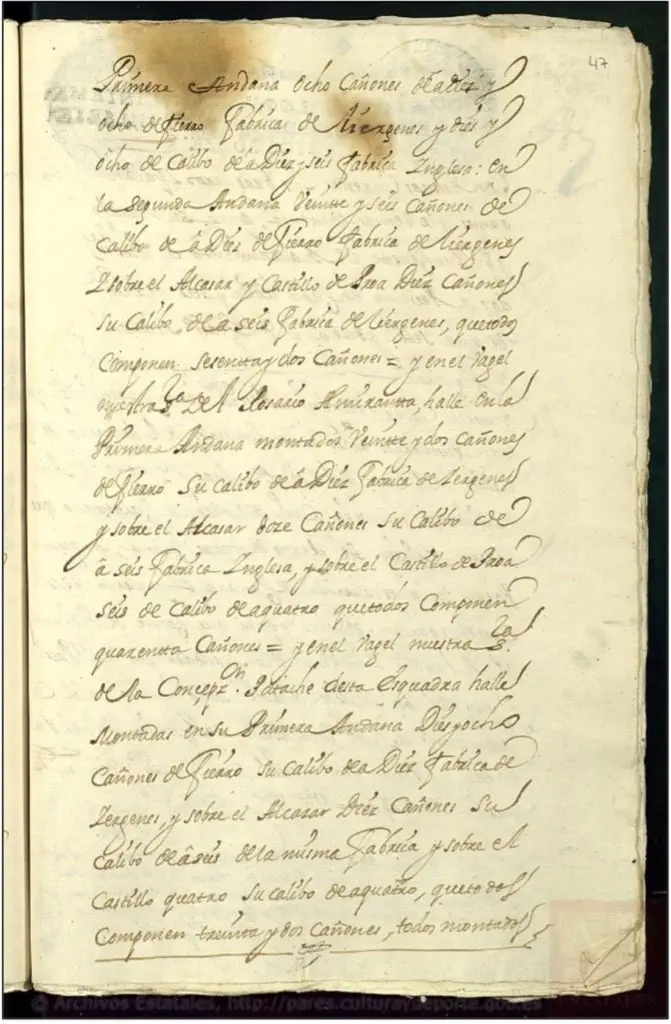 47
Primera Andana ocho Cañones de a diez y
ocho de fierro Fabrica de Liergenes y dies y
ocho de Calibo de â Diez y seis Fabrica Inglesa: en
la segunda Andana Veintte y seis Cañones de
Calibo de â Diez de fierro Fabrica de Liergenes
Y sobre el Alcasar y Castillo de Proa Diez Cañones
su Calibo de a seis Fabrica de Liergenes, que todos
Componen sesentta y dos Cañones = y en el Vagel
nuestra Sª Del Rosario Almirantta, halle en la
Primera Andana montados Veintte y dos cañones
de fierro su calibo de â Diez Fabrica de Lergenes
y sobre el Alcasar doze Cañones su Calibo de
â seis Fabrica Inglesa, y sobre el Castillo de Proa
seis de Calibo de aquatro que todos Componen
quarentta Cañones = y en el Vagel nuestra Sª
de la Concepzon. Patache desta Esquadra halle
Montadas en su Primera Andana Dies y ocho
Cañones de fierro su calibo de a Diez Fabrica de
Lergenes, y sobre el Alcasar Diez Cañones su
Calibo de â seis de la misma Fabrica y sobre el
Castillo quatro su calibo de aquatro, que todos
Componen treinta y dos Cañones, todos montados
© Archivos Estatales, http://pares.culturaydeporte.gob.es